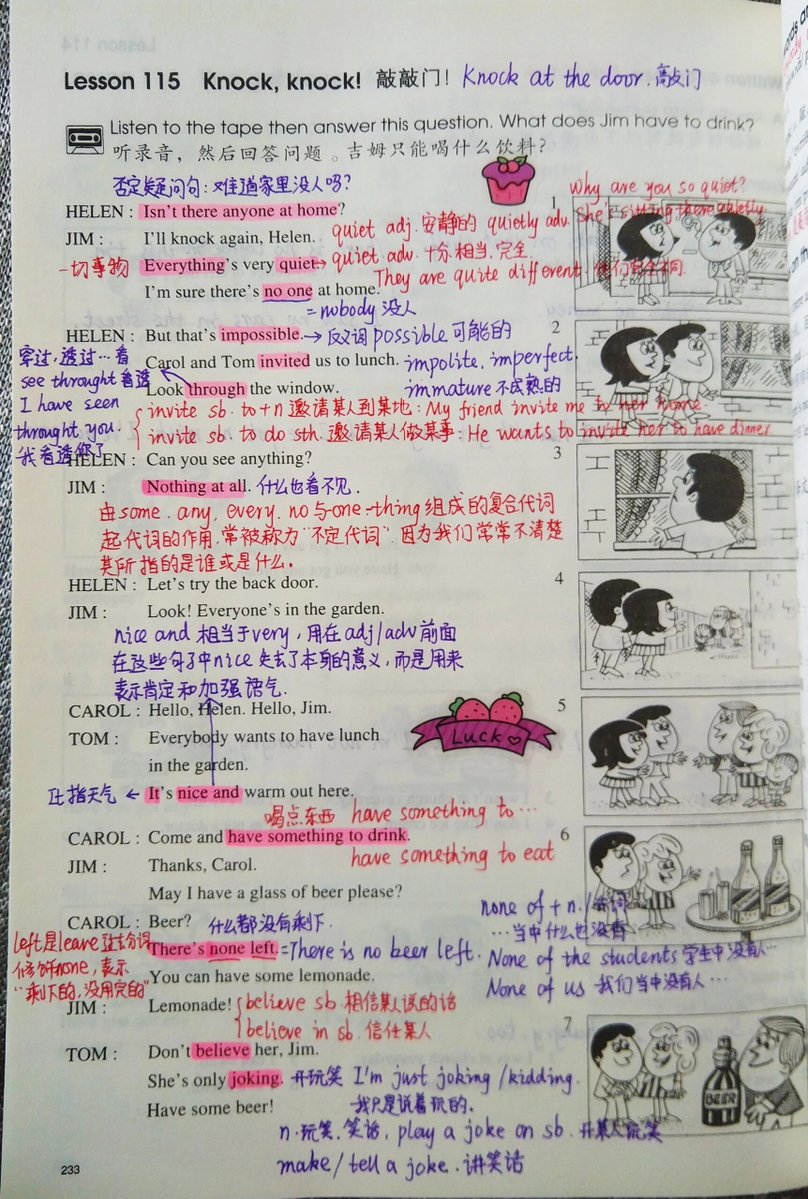 Lesson 115 Knock, knock! 敲敲门! Knock at the door. 敲门
Listen to the tape then answer this question. What does Jim have to drink?
听录音，然后回答问题。吉姆只能喝什么饮料?
否定疑问句: 难道家里没人吗?
Why are you so quiet?
1
HELEN : Isn't there anyone at home?
She's sitting there quietly
JIM : I'll knock again, Helen.
quiet adj. 安静的 quietly adv.
一切事物
Everything's very quiet.
quiet adv. 十分.相当.完全.
They are quite different.
I'm sure there's no one at home.
=nobody 没人
2
HELEN : But that's impossible.
→反义词 possible 可能的
Carol and Tom invited us to lunch.
impolite, imperfect,
Look through the window.
immature 不成熟的
穿过,透过…看
see throught 看透
I have seen
throught you.
我看透你了
invite sb. to+n 邀请某人到某地: My friend invite me to her home.
invite sb. to do sth. 邀请某人做某事: He wants to invite her to have dinner
3
HELEN : Can you see anything?
JIM : Nothing at all. 什么也看不见.
由some. any, every, no 与one-thing组成的复合代词
起代词的作用.常被称为"不定代词" 因为我们常常不清楚
其所指的是谁或是什么.
4
HELEN : Let's try the back door.
JIM : Look! Everyone's in the garden.
nice and 相当于very, 用在adj/adv前面
在这些句子中nice失去了本身的意义,而是用来
表示肯定和加强语气.
5
CAROL : Hello, Helen. Hello, Jim.
TOM : Everybody wants to have lunch
in the garden.
Luck
It's nice and warm out here.
It指天气
喝点东西 have something to…
6
CAROL : Come and have something to drink.
have something to eat
JIM : Thanks, Carol.
May I have a glass of beer please?
CAROL : Beer?
什么都没有剩下.
There's none left.
=There is no beer left.
You can have some lemonade.
left是leave过去分词
修饰none, 表示
"剩下的,没用完的"
none of + n./代词
…当中什么也没有
None of the students 学生中没有人…
None of us 我们当中没有人…
7
JIM : Lemonade!
believe sb. 相信某人说的话
believe in sb. 信任某人
TOM : Don't believe her, Jim.
She's only joking.
开玩笑 I'm just joking/kidding.
我只是说着玩的.
Have some beer!
BEER
n.玩笑.笑话, play a joke on sb. 开某人玩笑
make/tell a joke. 讲笑话
233